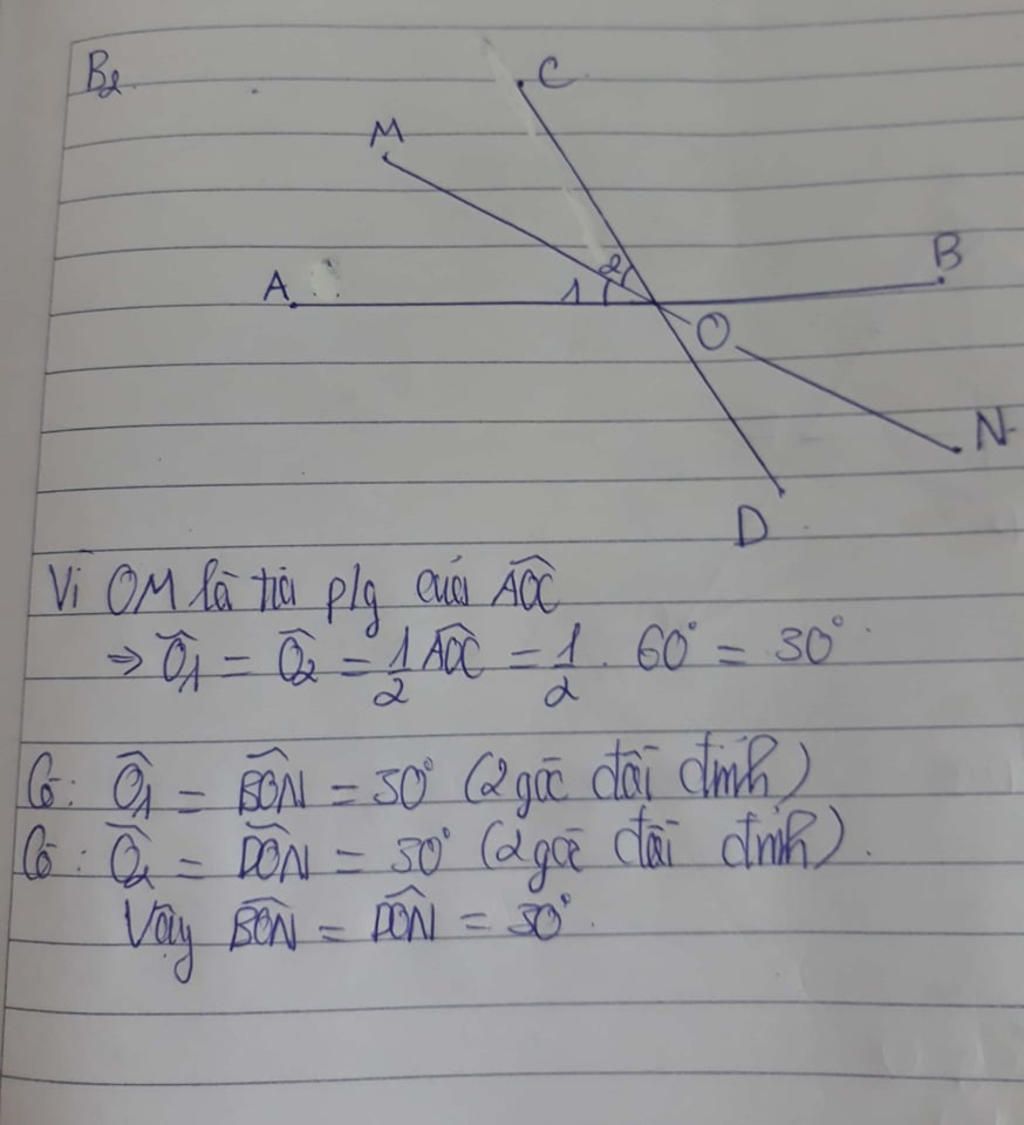 B2
C
M
2
B
A
1
O
N
D
Vì OM là tia p/g của AOC
⇒ O1 = O2 = 1/2 AOC = 1/2 . 60° = 30°
Có: O1 = BON = 30° (2 góc đối đỉnh)
Có: O2 = DON = 30° (2 góc đối đỉnh).
Vậy BON = DON = 30°.